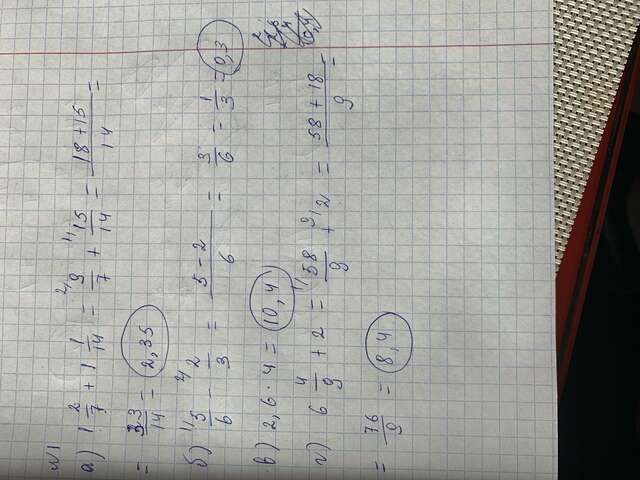 №1
а) 1 2/7 + 1 1/14 = 2\ 9/7 + 1\ 15/14 = (18 + 15)/14 =
= 33/14 = 2,35
б) 1\ 5/6 - 2\ 2/3 = (5 - 2)/6 = 3/6 = 1/3 = 0,3
в) 2,6 · 4 = 10,4
г) 6 4/9 + 2 = 1\ 58/9 + 9\ 2 = (58 + 18)/9 =
= 76/9 = 8,4